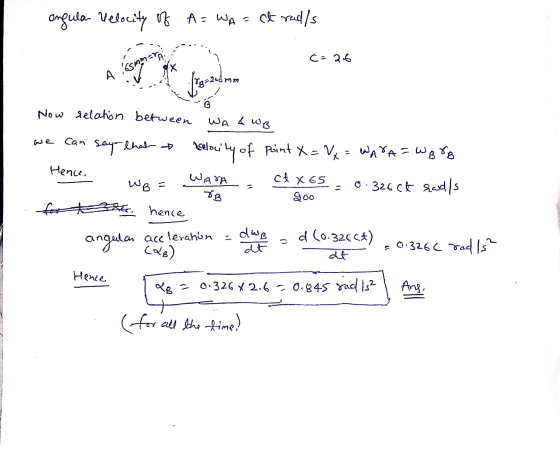 angular velocity of A = ωA = ct rad/s
65mm=rA
X
C = 2.6
A
rB=200mm
B
Now relation between ωA & ωB
we can say that → velocity of point X = Vx = ωA rA = ωB rB
Hence. ωB = ωA rA / rB = ct × 65 / 200 = 0.326 ct rad/s
hence
angular acceleration (αB) = dωB / dt = d (0.326ct) / dt = 0.326C rad/s²
Hence αB = 0.326 × 2.6 = 0.845 rad/s² Ans.
(for all the time)